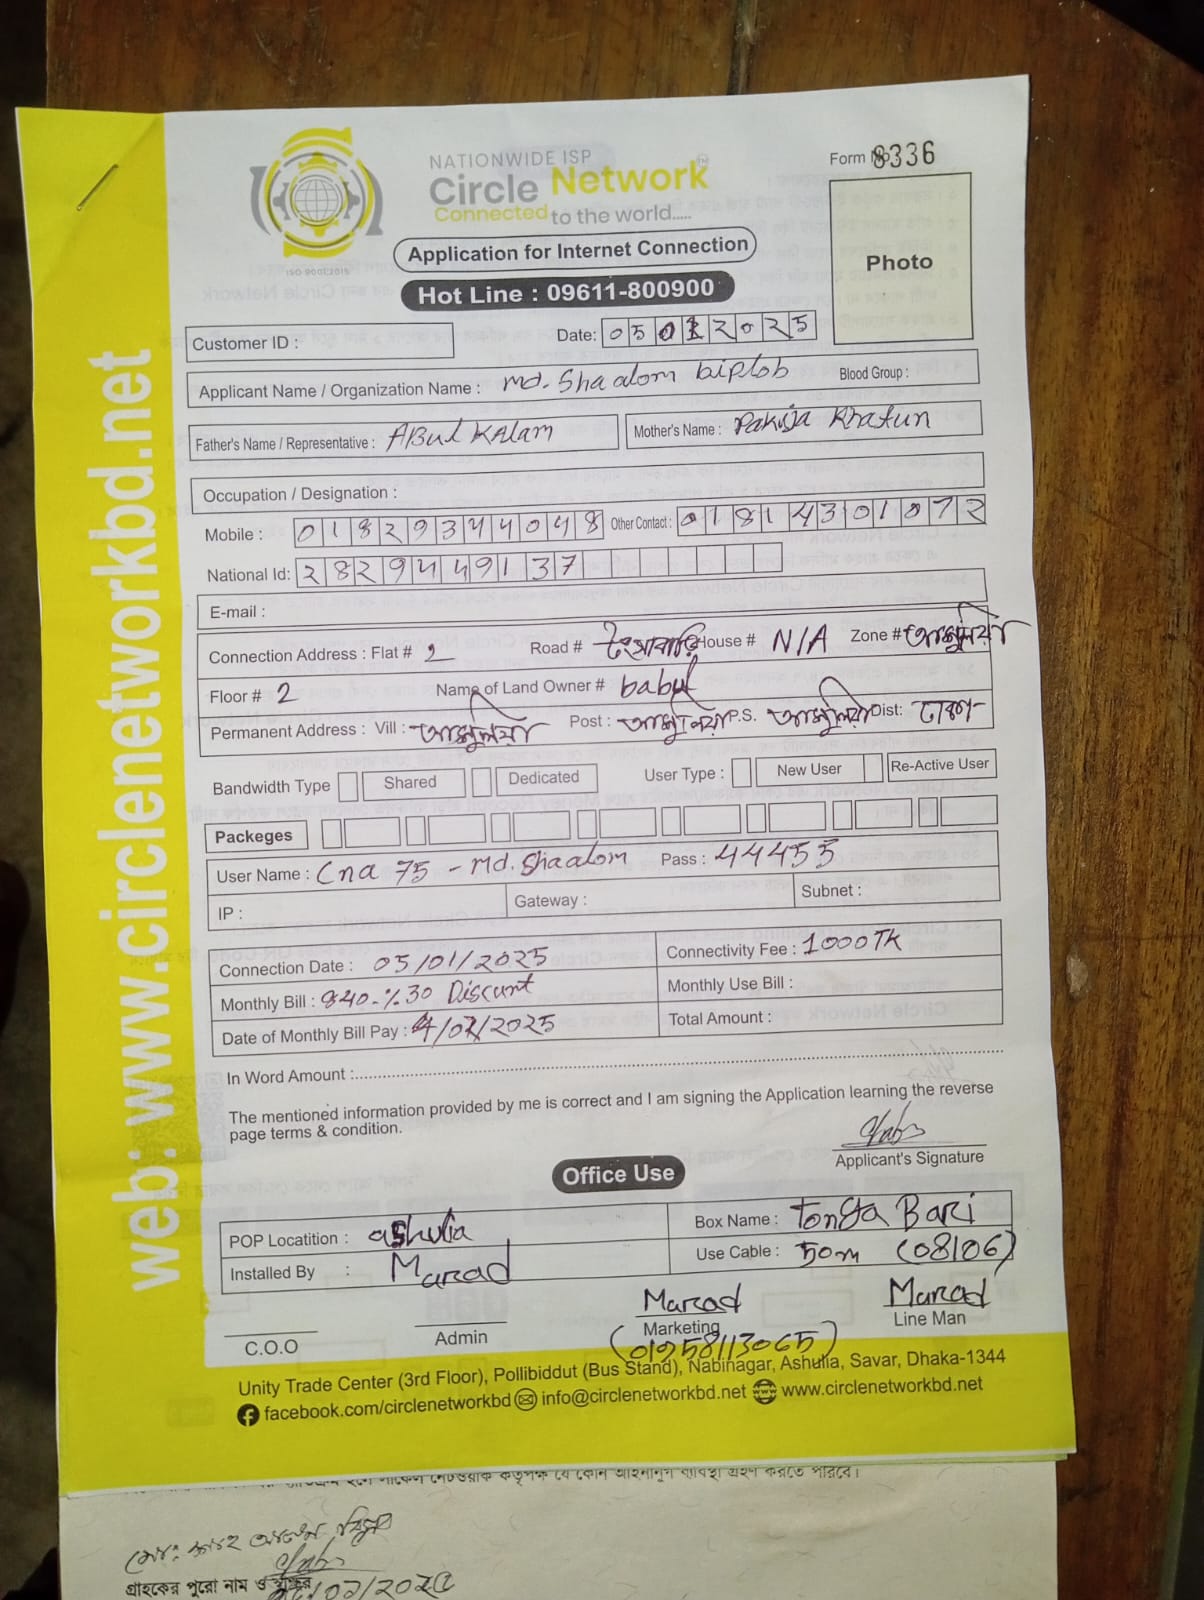 NATIONWIDE ISP
Circle Network™
Connected to the world.....
Form No 8336
Photo
ISO 9001:2015
Application for Internet Connection
Hot Line : 09611-800900
Customer ID :
Date: 05012025
Applicant Name / Organization Name : Md. Shaalom biplob Blood Group :
Father's Name / Representative : ABul KAlam Mother's Name : Pakija Khatun
Occupation / Designation :
Mobile : 01829344048 Other Contact : 01814301072
National Id: 2829449137
E-mail :
Connection Address : Flat # 2 Road # House # N/A Zone # আশুলিয়া
Floor # 2 Name of Land Owner # babul
Permanent Address : Vill : আশুলিয়া Post : আশুলিয়া P.S. আশুলিয়া Dist: ঢাকা
Bandwidth Type Shared Dedicated User Type : New User Re-Active User
Packeges
User Name : Cna 75 - Md. Shaalom Pass : 44455
IP : Gateway : Subnet :
Connection Date : 05/01/2025 Connectivity Fee : 1000TK
Monthly Bill : 840-%30 Discunt Monthly Use Bill :
Date of Monthly Bill Pay : /2025 Total Amount :
In Word Amount :
The mentioned information provided by me is correct and I am signing the Application learning the reverse
page terms & condition.
Applicant's Signature
Office Use
POP Locatition : ashulia Box Name : Tonga Bari
Installed By : Marad Use Cable : 50m (08106)
Marad Marad
C.O.O Admin Marketing Line Man
(01958113065)
Unity Trade Center (3rd Floor), Pollibiddut (Bus Stand), Nabinagar, Ashulia, Savar, Dhaka-1344
facebook.com/circlenetworkbd info@circlenetworkbd.net www.circlenetworkbd.net
web: www.circlenetworkbd.net
নেটওয়ার্ক কতৃপক্ষ যে কোন আইনানুগ ব্যবস্থা গ্রহণ করতে পারবে।
মোঃ শাহ আলম বিপ্লব
গ্রাহকের পুরো নাম ও